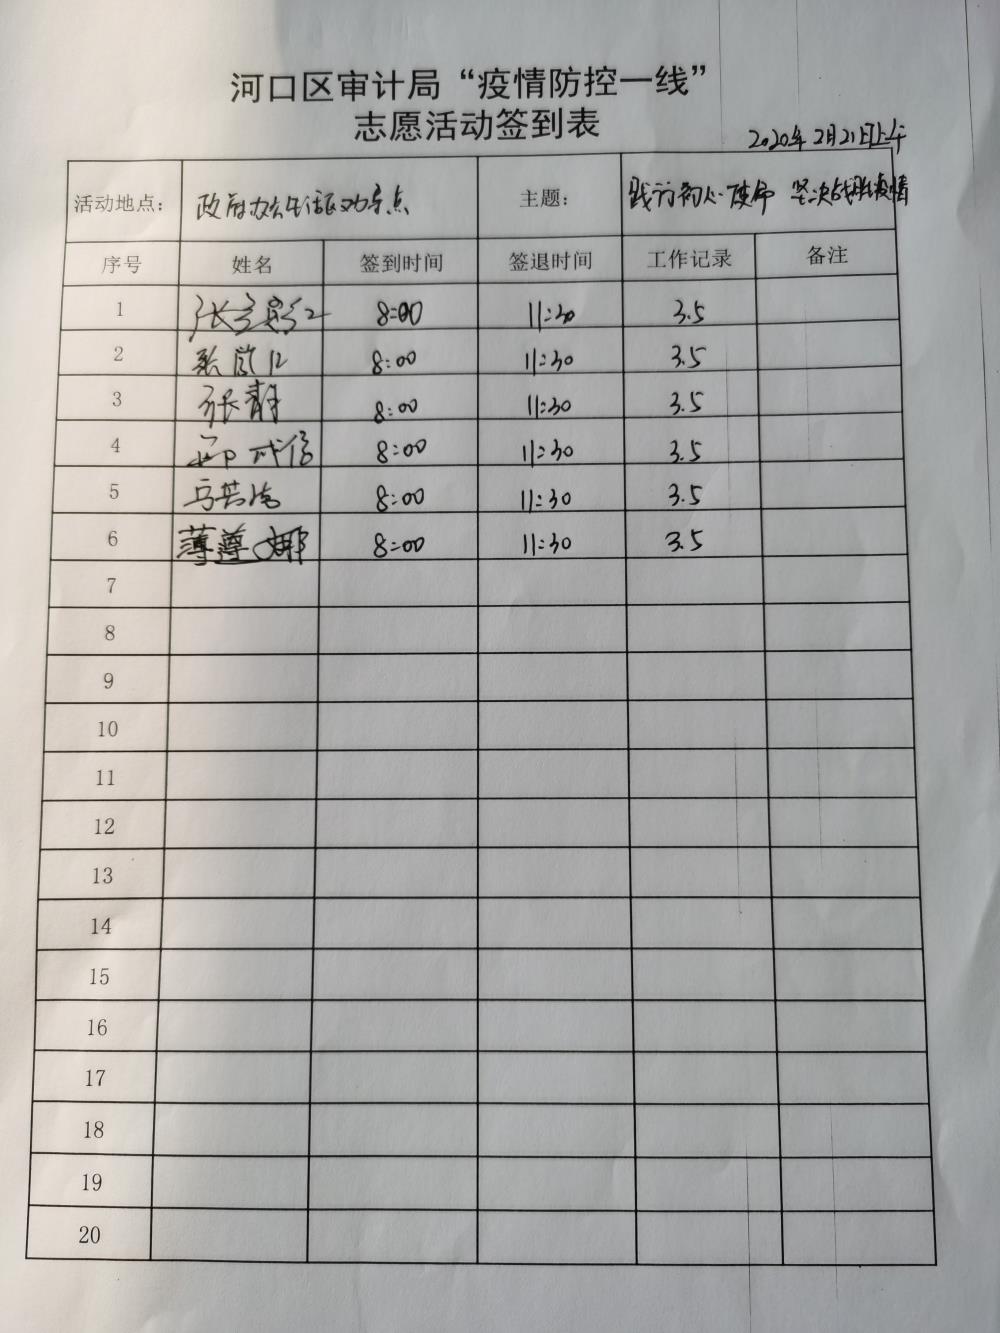 河口区审计局“疫情防控一线”
志愿活动签到表
2020年2月21日上午
活动地点： 政府办公生活区劝导点 主题： 践行初心使命 坚决战胜疫情
序号 姓名 签到时间 签退时间 工作记录 备注
1 8:00 11:30 3.5
2 8:00 11:30 3.5
3 张静 8:00 11:30 3.5
4 8:00 11:30 3.5
5 8:00 11:30 3.5
6 薄尊娜 8:00 11:30 3.5
7
8
9
10
11
12
13
14
15
16
17
18
19
20